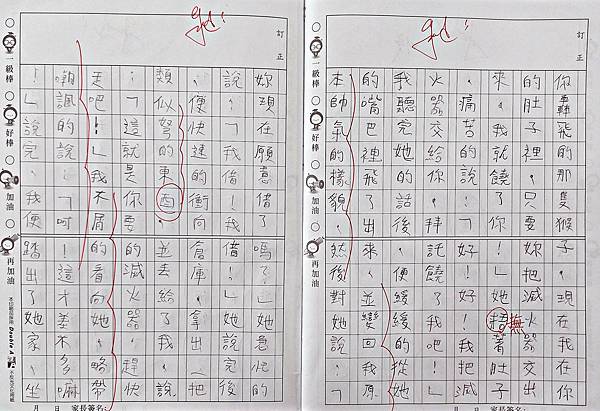 訂正
你轟飛的那隻猴子,現在我在你
的肚子裡。只要妳把滅火器交出
來,我就饒了你!」她著肚子
痛苦的說了「好!好!我把滅
火器交給你!拜託饒了我吧!」
我聽完她的話後,便緩緩的從她
的嘴巴裡飛了出來,並變回我原
本帥氣的樣貌,然後對她說:「
撫
訂正
妳現在願意借了嗎?」她急忙的
說:「我借了!我借!」她說完後
便快速的衝向倉庫,拿出了把
類似努的東西,並丟給了我,說
:「這就是你要的滅火器,趕快
走吧!」我不屑的看向她,略帶
嘲諷的說:「呵!這才差不多嘛
!」說完,我便踏出了她家,坐
一級棒
好棒
加油
再加油
月 日 家長簽名:
Double A